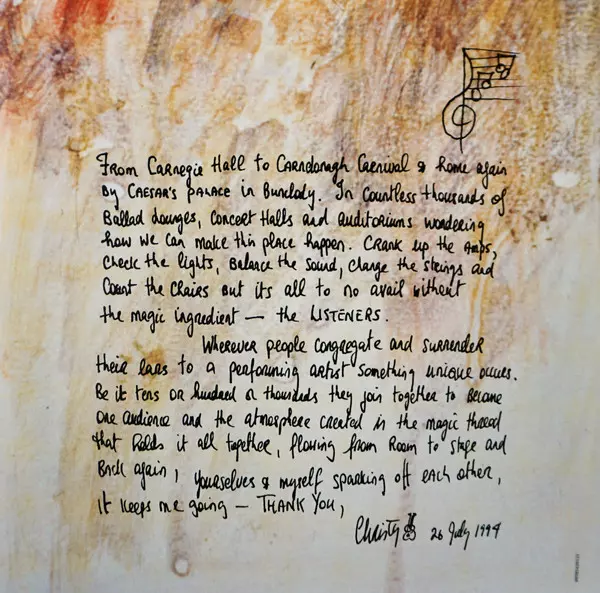 From Carnegie Hall to Carndonagh Carnival & home again
By CAESAR'S PALACE in Bunclody. In Countless thousands of
Ballad Lounges, Concert Halls and Auditoriums wondering
how we can make this place happen. Crank up the Amps,
Check the lights, Balance the Sound, Change the Strings and
Count the Chairs But its all to no avail without
the magic ingredient — the LISTENERS.
Wherever people congregate and surrender
their Ears to a performing artist something unique occurs.
Be it tens or hundred or thousands they join together to Become
One audience and the atmosphere created is the magic thread
that Holds it all together, flowing from Room to Stage and
Back again, yourselves & myself sparking off each other,
It keeps me going — THANK YOU,
Christy 26 July 1994